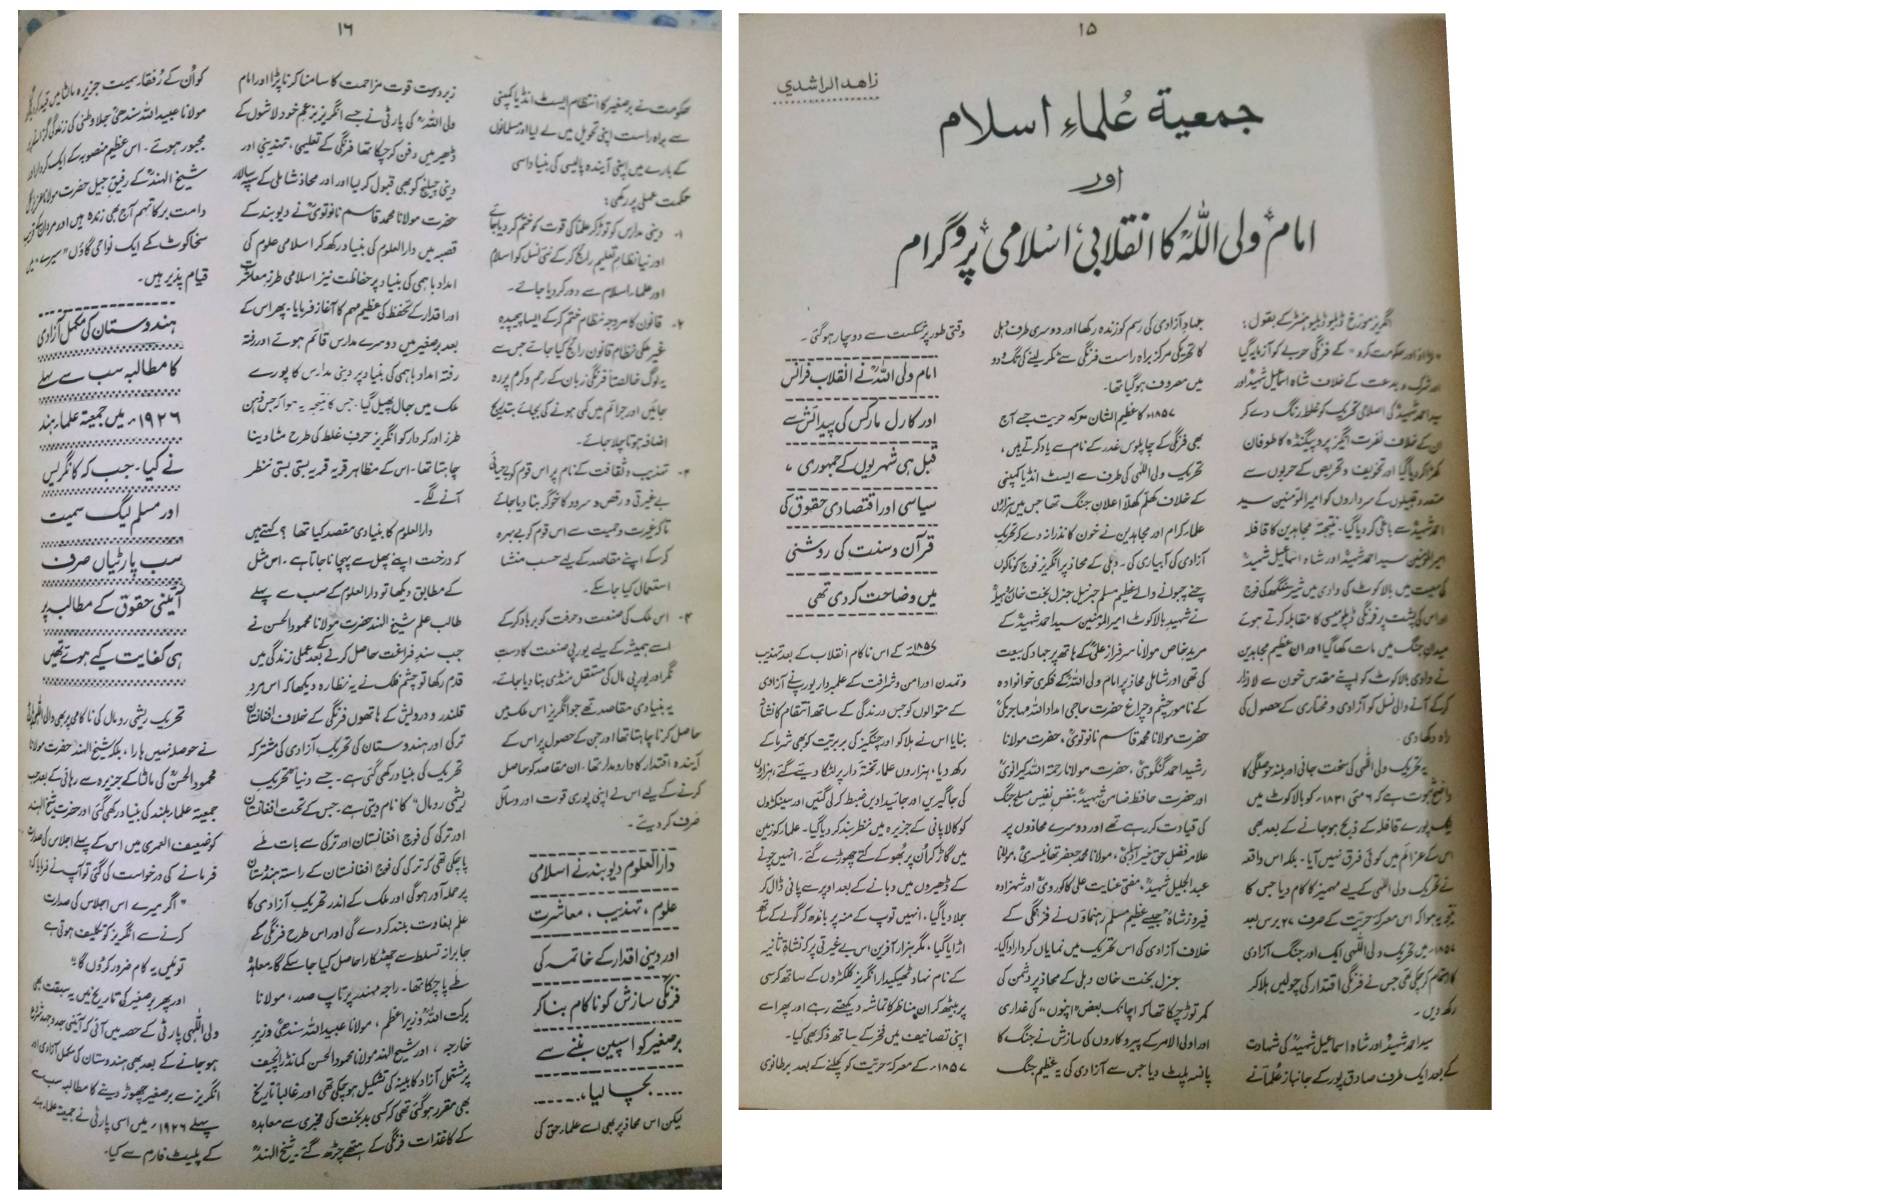 ۱۵
زاہد الراشدی
جمعیۃ علماء اسلام
اور
امام ولی اللہؒ کا انقلابی اسلامی پروگرام
انگریز مورخ ڈبلیو ڈبلیو ہنٹر کے بقول :
اور حکومت کرو " کے فرنگی حربے کو آزمایا گیا
اور شرک و بدعت کے خلاف شاہ اسماعیل شہیدؒ اور
سید احمد شہیدؒ کی اصلاحی تحریک کو غلط رنگ دے کر
ان کے خلاف نفرت انگیز پروپیگنڈہ کا طوفان
کھڑا کر دیا گیا اور تخویف و تحریص کے حربوں سے
متعدد قبیلوں کے سرداروں کو امیر المؤمنین سید
احمد شہیدؒ سے باغی کر دیا گیا۔ نتیجتہً مجاہدین کا قافلہ
امیر المؤمنین سید احمد شہیدؒ اور شاہ اسماعیل شہیدؒ
کی معیت میں بالاکوٹ کی وادی میں شیر سنگھ کی فوج
اور اس کی پشت پر فرنگی ڈپلومیسی کا مقابلہ کرتے ہوئے
میدان جنگ میں مات کھا گیا اور ان عظیم مجاہدین
نے وادی بالاکوٹ کو اپنے مقدس خون سے لالہ زار
کر کے آنے والی نسل کو آزادی و مختاری کے حصول کی
راہ دکھا دی۔
یہ تحریک ولی اللّٰہی کی سخت جانی اور بلند حوصلگی کا
واضح ثبوت ہے کہ ۶ مئی ۱۸۳۱ء کو بالاکوٹ میں
پورے قافلہ کے ذبح ہو جانے کے بعد بھی
اس کے عزائم میں کوئی فرق نہیں آیا۔ بلکہ اس واقعہ
نے تحریک ولی اللّٰہی کے لیے مہمیز کا کام دیا جس کا
نتیجہ یہ ہوا کہ اس معرکۂ حریت کے صرف ۲۷ برس بعد
۱۸۵۷ء میں تحریک ولی اللّٰہی ایک اور جنگ آزادی
کا اہتمام کر چکی تھی جس نے فرنگی اقتدار کی چولیں ہلا کر
رکھ دیں۔
سید احمد شہیدؒ اور شاہ اسماعیل شہیدؒ کی شہادت
کے بعد ایک طرف صادق پور کے جانباز علماؒ نے
جہاد آزادی کی رسم کو زندہ رکھا اور دوسری طرف دہلی
کا تحریکی مرکز براہ راست فرنگی سے ٹکر لینے کی تگ و دو
میں مصروف ہو گیا تھا۔
۱۸۵۷ء کا عظیم الشان معرکہ حریت جسے آج
بھی فرنگی کے چاپلوس غدر کے نام سے یاد کرتے ہیں ،
تحریک ولی اللّٰہی کی طرف سے ایسٹ انڈیا کمپنی
کے خلاف کھلم کھلا اعلان جنگ تھا جس میں ہزاروں
علماء کرام اور مجاہدین نے خون کا نذرانہ دے کر تحریک
آزادی کی آبیاری کی۔ دہلی کے محاذ پر انگریز فوج کو ناکوں
چنے چبوانے والے عظیم مسلم جرنیل جنرل بخت خان شہیدؒ
نے شہید بالاکوٹ امیر المؤمنین سید احمد شہیدؒ کے
مرید خاص مولانا سرفراز علیؒ کے ہاتھ پر جہاد کی بیعت
کی تھی اور شاملی محاذ پر امام ولی اللہؒ کے فکری خانوادہ
کے نامور چشم و چراغ حضرت حاجی امداد اللہ مہاجر مکیؒ
حضرت مولانا محمد قاسم نانوتویؒ ، حضرت مولانا
رشید احمد گنگوہیؒ ، حضرت مولانا رحمت اللہ کیرانویؒ
اور حضرت حافظ ضامن شہیدؒ بنفس نفیس مسلح جنگ
کی قیادت کر رہے تھے اور دوسرے محاذوں پر
علامہ فضل حق خیر آبادیؒ ، مولانا محمد جعفر تھانیسریؒ ، مولانا
عبد الجلیل شہیدؒ ، مفتی عنایت علی کاکورویؒ اور شہزادہ
فیروز شاہؒ جیسے عظیم مسلم رہنماؤں نے فرنگی کے
خلاف آزادی کی اس تحریک میں نمایاں کردار ادا کیا۔
جنرل بخت خان دہلی کے محاذ پر دشمن کی
کمر توڑ چکا تھا کہ اچانک بعض "اپنوں" کی غداری
اور اولی الامر کے پیروکاروں کی سازش نے جنگ کا
پانسہ پلٹ دیا جس سے آزادی کی یہ عظیم جنگ
وقتی طور پر شکست سے دوچار ہو گئی۔
امام ولی اللہؒ نے انقلاب فرانس
اور کارل مارکس کی پیدائش سے
قبل ہی شہریوں کے جمہوری ،
سیاسی اور اقتصادی حقوق کی
قرآن و سنت کی روشنی
میں وضاحت کر دی تھی
۱۸۵۷ء کے اس ناکام انقلاب کے بعد تہذیب
و تمدن اور امن و شرافت کے علمبردار یورپ نے آزادی
کے متوالوں کو جس درندگی کے ساتھ انتقام کا نشانہ
بنایا اس نے ہلاکو اور چنگیز کی بربریت کو بھی شرما کے
رکھ دیا، ہزاروں علماء تختۂ دار پر لٹکا دیئے گئے، ہزاروں
کی جاگیریں اور جائیدادیں ضبط کر لی گئیں اور سینکڑوں
کو کالا پانی کے جزیرہ میں نظر بند کر دیا گیا۔ علماء کو زمین
میں گاڑ کر اُن پر بھوکے کتے چھوڑے گئے۔ انہیں چونے
کے ڈھیروں میں دبانے کے بعد اوپر سے پانی ڈال کر
جلا دیا گیا، انہیں توپ کے منہ پر باندھ کر گولے کے ساتھ
اڑایا گیا، مگر ہزار آفرین اس بے غیرتی پر کہ نشاۃ ثانیہ
کے نام نہاد ٹھیکیدار انگریز کلکٹروں کے ساتھ کرسی
پر بیٹھ کر ان مناظر کا تماشہ دیکھتے رہے اور پھر اسے
اپنی تصانیف میں فخر کے ساتھ ذکر بھی کیا۔
۱۸۵۷ء کے معرکۂ حریت کو کچلنے کے بعد برطانوی
۱۶
حکومت نے برصغیر کا انتظام ایسٹ انڈیا کمپنی
سے براہ راست اپنی تحویل میں لے لیا اور مسلمانوں
کے بارے میں اپنی آیندہ پالیسی کی بنیاد اسی
حکمت عملی پر رکھی :
۱۔ دینی مدارس کو توڑ کر علماؒ کی قوت کو ختم کر دیا جائے
اور نیا نظام تعلیم رائج کر کے نئی نسل کو اسلام
اور علماء اسلام سے دور کر دیا جائے۔
۲۔ قانون کا مروجہ نظام ختم کر کے ایسا پیچیدہ
غیر ملکی نظام قانون رائج کیا جائے جس سے
یہ لوگ خالصتاً فرنگی زبان کے رحم و کرم پر رہ
جائیں اور جرائم میں کمی ہونے کی بجائے بتدریج
اضافہ ہوتا چلا جائے۔
۳۔ تہذیب و ثقافت کے نام پر اس قوم کو بے حیائی
بے غیرتی و رقص و سرود کا خوگر بنا دیا جائے
تاکہ غیرت و حمیت سے اس قوم کو بے بہرہ
کر کے اپنے مقاصد کے لیے حسب منشا
استعمال کیا جا سکے۔
۴۔ اس ملک کی صنعت و حرفت کو برباد کر کے
اسے ہمیشہ کے لیے یورپی صنعت کا دست
نگر اور یورپی مال کی مستقل منڈی بنا دیا جائے۔
یہ بنیادی مقاصد تھے جو انگریز اس ملک میں
حاصل کرنا چاہتا تھا اور جن کے حصول پر اس کے
آیندہ اقتدار کا دار و مدار تھا۔ ان مقاصد کو حاصل
کرنے کے لیے اس نے اپنی پوری قوت اور وسائل
صرف کر دیئے۔
دارالعلوم دیوبند نے اسلامی
علوم ، تہذیب ، معاشرت
اور دینی اقدار کے خاتمہ کی
فرنگی سازش کو ناکام بنا کر
برصغیر کو اسپین بننے سے
بچا لیا،
لیکن اس محاذ پر بھی اسے علماء حق کی
زبردست قوت مزاحمت کا سامنا کرنا پڑا اور امام
ولی اللہؒ کی پارٹی نے جسے انگریز بزعم خود لاشوں کے
ڈھیر میں دفن کر چکا تھا فرنگی کے تعلیمی ، تہذیبی اور
دینی چیلنج کو بھی قبول کر لیا اور محاذ شاملی کے سپہ سالار
حضرت مولانا محمد قاسم نانوتویؒ نے دیوبند کے
قصبہ میں دارالعلوم کی بنیاد رکھ کر اسلامی علوم کی
امداد باہمی کی بنیاد پر حفاظت نیز اسلامی طرز معاشرت
اور اقدار کے تحفظ کی عظیم مہم کا آغاز فرمایا۔ پھر اس کے
بعد برصغیر میں دوسرے مدارس قائم ہوئے اور رفتہ
رفتہ امداد باہمی کی بنیاد پر دینی مدارس کا پورے
ملک میں جال پھیل گیا۔ جس کا نتیجہ یہ ہوا کہ جس ذہن
طرز اور کردار کو انگریز حرف غلط کی طرح مٹا دینا
چاہتا تھا۔ اس کے مظاہر قریہ قریہ بستی بستی نظر
آنے لگے۔
دارالعلوم کا بنیادی مقصد کیا تھا ؟ کہتے ہیں
کہ درخت اپنے پھل سے پہچانا جاتا ہے۔ اس مثل
کے مطابق دیکھا تو دارالعلوم کے سب سے پہلے
طالب علم شیخ الہند حضرت مولانا محمود الحسن نے
جب سند فراغت حاصل کرنے کے بعد عملی زندگی میں
قدم رکھا تو چشم فلک نے یہ نظارہ دیکھا کہ اس مرد
قلندر و درویش کے ہاتھوں فرنگی کے خلاف افغانستان
ترکی اور ہندوستان کی تحریک آزادی کی مشترکہ
تحریک کی بنیاد رکھی گئی ہے۔ جسے دنیا "تحریک
ریشمی رومال" کا نام دیتی ہے۔ جس کے تحت افغانستان
اور ترکی کی فوج افغانستان اور ترکی سے بات طے
پا چکی تھی کہ ترکی کی فوج افغانستان کے راستہ ہندوستان
پر حملہ آور ہوگی اور ملک کے اندر تحریک آزادی کا
علم بغاوت بلند کر دے گی اور اس طرح فرنگی کے
جابرانہ تسلط سے چھٹکارا حاصل کیا جا سکے گا، معاہدہ
طے پا چکا تھا۔ راجہ مہندر پرتاپ صدر ، مولانا
برکت اللہؒ وزیر اعظم ، مولانا عبید اللہ سندھیؒ وزیر
خارجہ ، اور شیخ الہند مولانا محمود الحسن کمانڈر انچیف
پر مشتمل آزاد کابینہ کی تشکیل ہو چکی تھی اور غالباً تاریخ
بھی مقرر ہو گئی تھی کہ کسی بدبخت کی مخبری سے معاہدہ
کے کاغذات فرنگی کے ہتھے چڑھ گئے۔ شیخ الہندؒ
کو اُن کے رُفقاء سمیت جزیرہ مالٹا میں
مولانا عبید اللہ سندھیؒ جلا وطنی کی زندگی گزارنے پر
مجبور ہوئے۔ اس عظیم منصوبہ کے ایک کردار اور
شیخ الہندؒ کے رفیق جلیل حضرت مولانا عزیر گل
دامت برکاتہم آج بھی زندہ ہیں اور مردان کے قریب
سخاکوٹ کے ایک نواحی گاؤں میں
قیام پذیر ہیں۔
ہندوستان کی مکمل آزادی
کا مطالبہ سب سے پہلے
۱۹۲۶ء میں جمعیۃ علماء ہند
نے کیا۔ جب کہ کانگریس
اور مسلم لیگ سمیت
سب پارٹیاں صرف
آئینی حقوق کے مطالبہ پر
ہی کفایت کیے ہوئے تھیں
تحریک ریشمی رومال کی ناکامی پر بھی ولی اللّٰہی پارٹی
نے حوصلہ نہیں ہارا، بلکہ شیخ الہند حضرت مولانا
محمود الحسنؒ کی مالٹا کے جزیرہ سے رہائی کے بعد جب
جمعیۃ علماء ہند کی بنیاد رکھی گئی اور حضرت شیخ الہند
کو ضعیف العمری میں اس کے پہلے اجلاس کی صدارت
فرمانے کی درخواست کی گئی تو آپ نے فرمایا کہ
" اگر میرے اس اجلاس کی صدارت
کرنے سے انگریز کو تکلیف ہوتی ہے
تو میں یہ کام ضرور کروں گا"
اور پھر برصغیر کی تاریخ میں یہ سبقت بھی
ولی اللّٰہی پارٹی کے حصہ میں آئی کہ آئینی جدوجہد شروع
ہو جانے کے بعد بھی ہندوستان کی مکمل آزادی اور
انگریز سے برصغیر چھوڑ دینے کا مطالبہ سب سے
پہلے ۱۹۲۶ء میں اسی پارٹی نے جمعیۃ علماء ہند
کے پلیٹ فارم سے کیا۔